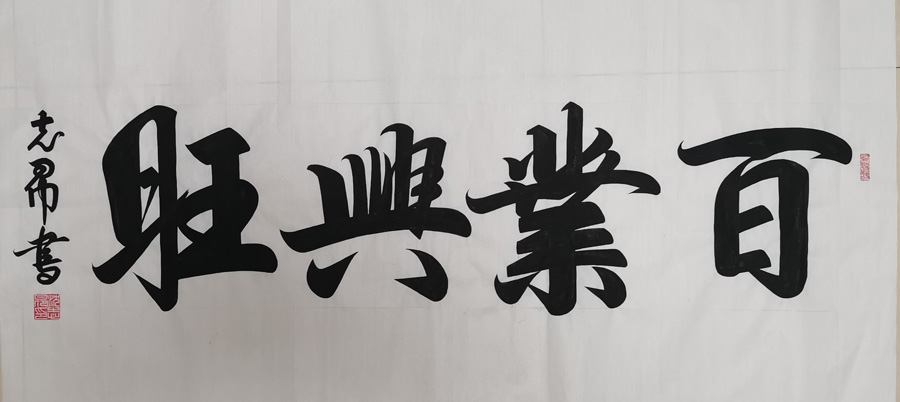 百業興旺
志昂書